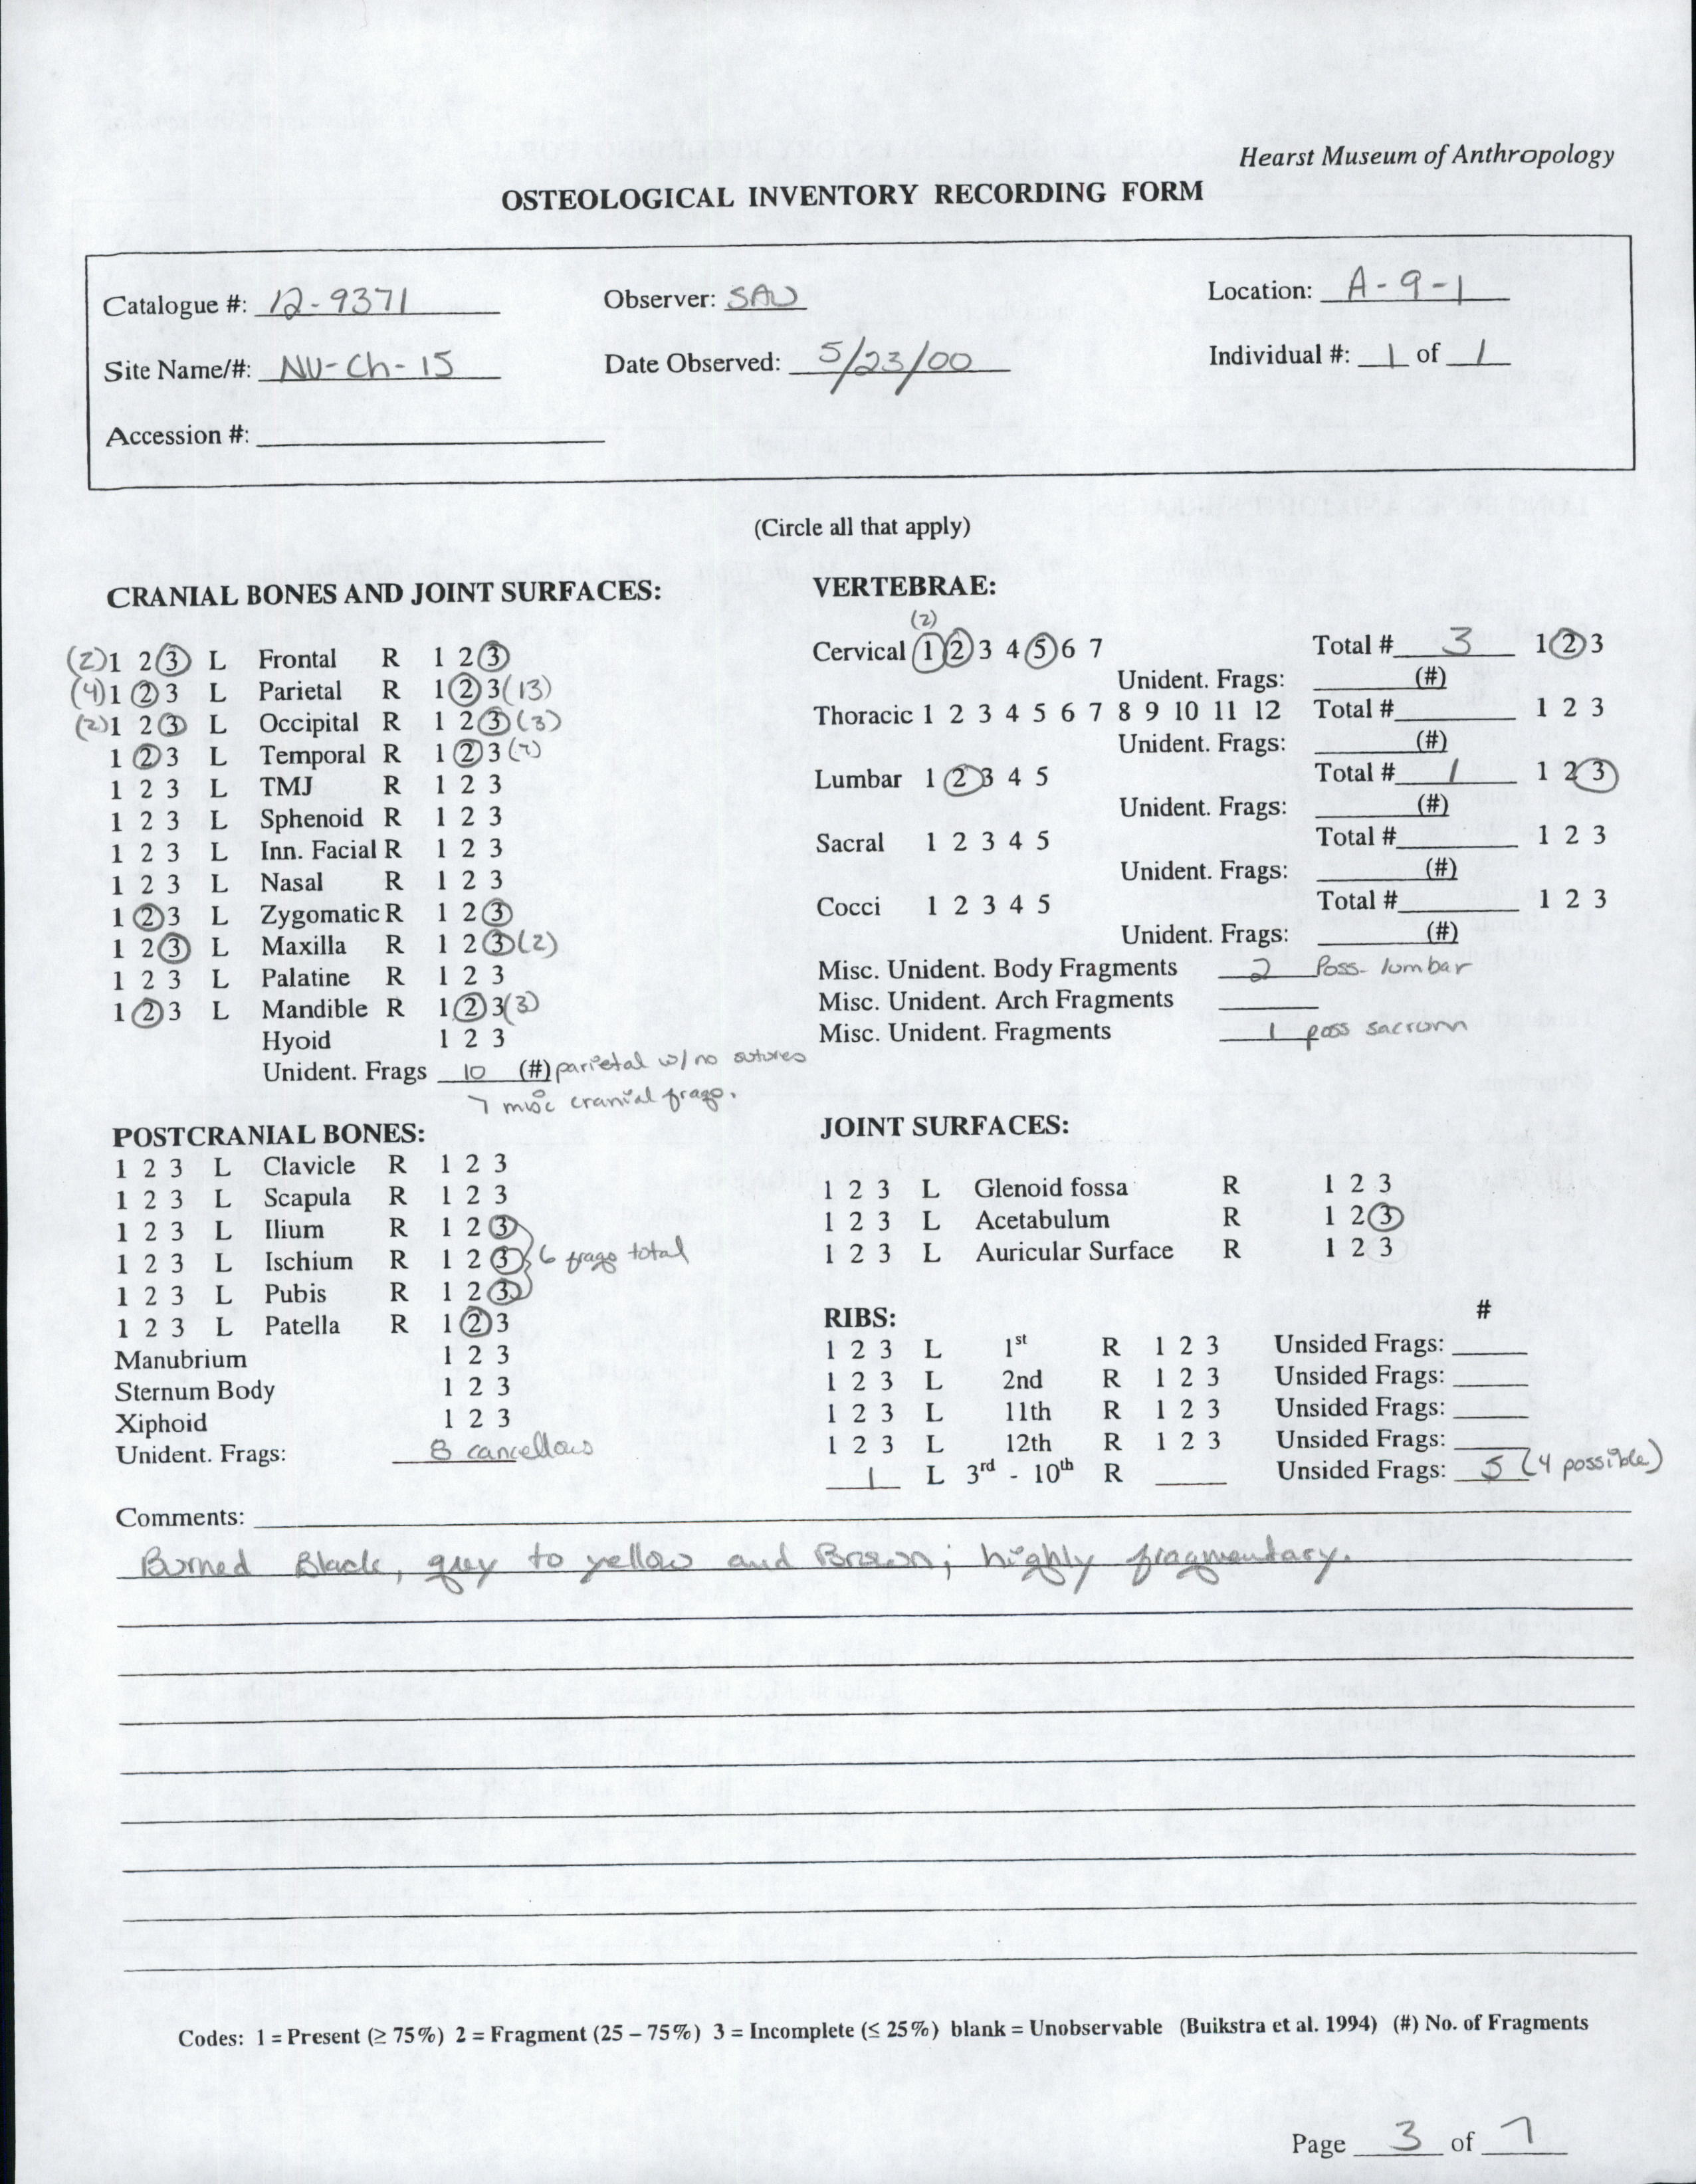 Hearst Museum of Anthropology
OSTEOLOGICAL INVENTORY RECORDING FORM
Catalogue #: 12-9371
Observer: SAW
Location: A-9-1
Site Name/#: NV-Ch-15
Date Observed: 5/23/00
Individual #: 1 of 1
Accession #:
(Circle all that apply)
CRANIAL BONES AND JOINT SURFACES:
(2) 1 2 3 L Frontal R 1 2 3
(4) 1 2 3 L Parietal R 1 2 3 (13)
(2) 1 2 3 L Occipital R 1 2 3 (3)
1 2 3 L Temporal R 1 2 3
1 2 3 L TMJ R 1 2 3
1 2 3 L Sphenoid R 1 2 3
1 2 3 L Inn. Facial R 1 2 3
1 2 3 L Nasal R 1 2 3
1 2 3 L Zygomatic R 1 2 3
1 2 3 L Maxilla R 1 2 3 (2)
1 2 3 L Palatine R 1 2 3
1 2 3 L Mandible R 1 2 3 (3)
Hyoid 1 2 3
Unident. Frags 10 (#) parietal w/ no sutures
7 misc cranial frags.
VERTEBRAE:
(2)
Cervical 1 2 3 4 5 6 7 Total # 3 1 2 3
Unident. Frags: (#)
Thoracic 1 2 3 4 5 6 7 8 9 10 11 12 Total # 1 2 3
Unident. Frags: (#)
Lumbar 1 2 3 4 5 Total # 1 1 2 3
Unident. Frags: (#)
Sacral 1 2 3 4 5 Total # 1 2 3
Unident. Frags: (#)
Cocci 1 2 3 4 5 Total # 1 2 3
Unident. Frags: (#)
Misc. Unident. Body Fragments 2 Poss. lumbar
Misc. Unident. Arch Fragments
Misc. Unident. Fragments 1 poss sacrum
POSTCRANIAL BONES:
1 2 3 L Clavicle R 1 2 3
1 2 3 L Scapula R 1 2 3
1 2 3 L Ilium R 1 2 3
1 2 3 L Ischium R 1 2 3 6 frags total
1 2 3 L Pubis R 1 2 3
1 2 3 L Patella R 1 2 3
Manubrium 1 2 3
Sternum Body 1 2 3
Xiphoid 1 2 3
Unident. Frags: 8 cancellous
JOINT SURFACES:
1 2 3 L Glenoid fossa R 1 2 3
1 2 3 L Acetabulum R 1 2 3
1 2 3 L Auricular Surface R 1 2 3
RIBS: #
1 2 3 L 1st R 1 2 3 Unsided Frags:
1 2 3 L 2nd R 1 2 3 Unsided Frags:
1 2 3 L 11th R 1 2 3 Unsided Frags:
1 2 3 L 12th R 1 2 3 Unsided Frags:
1 L 3rd - 10th R Unsided Frags: 5 (4 possible)
Comments:
Burned Black, grey to yellow and Brown; highly fragmentary.
Codes: 1 = Present (≥ 75%) 2 = Fragment (25 – 75%) 3 = Incomplete (≤ 25%) blank = Unobservable (Buikstra et al. 1994) (#) No. of Fragments
Page 3 of 7